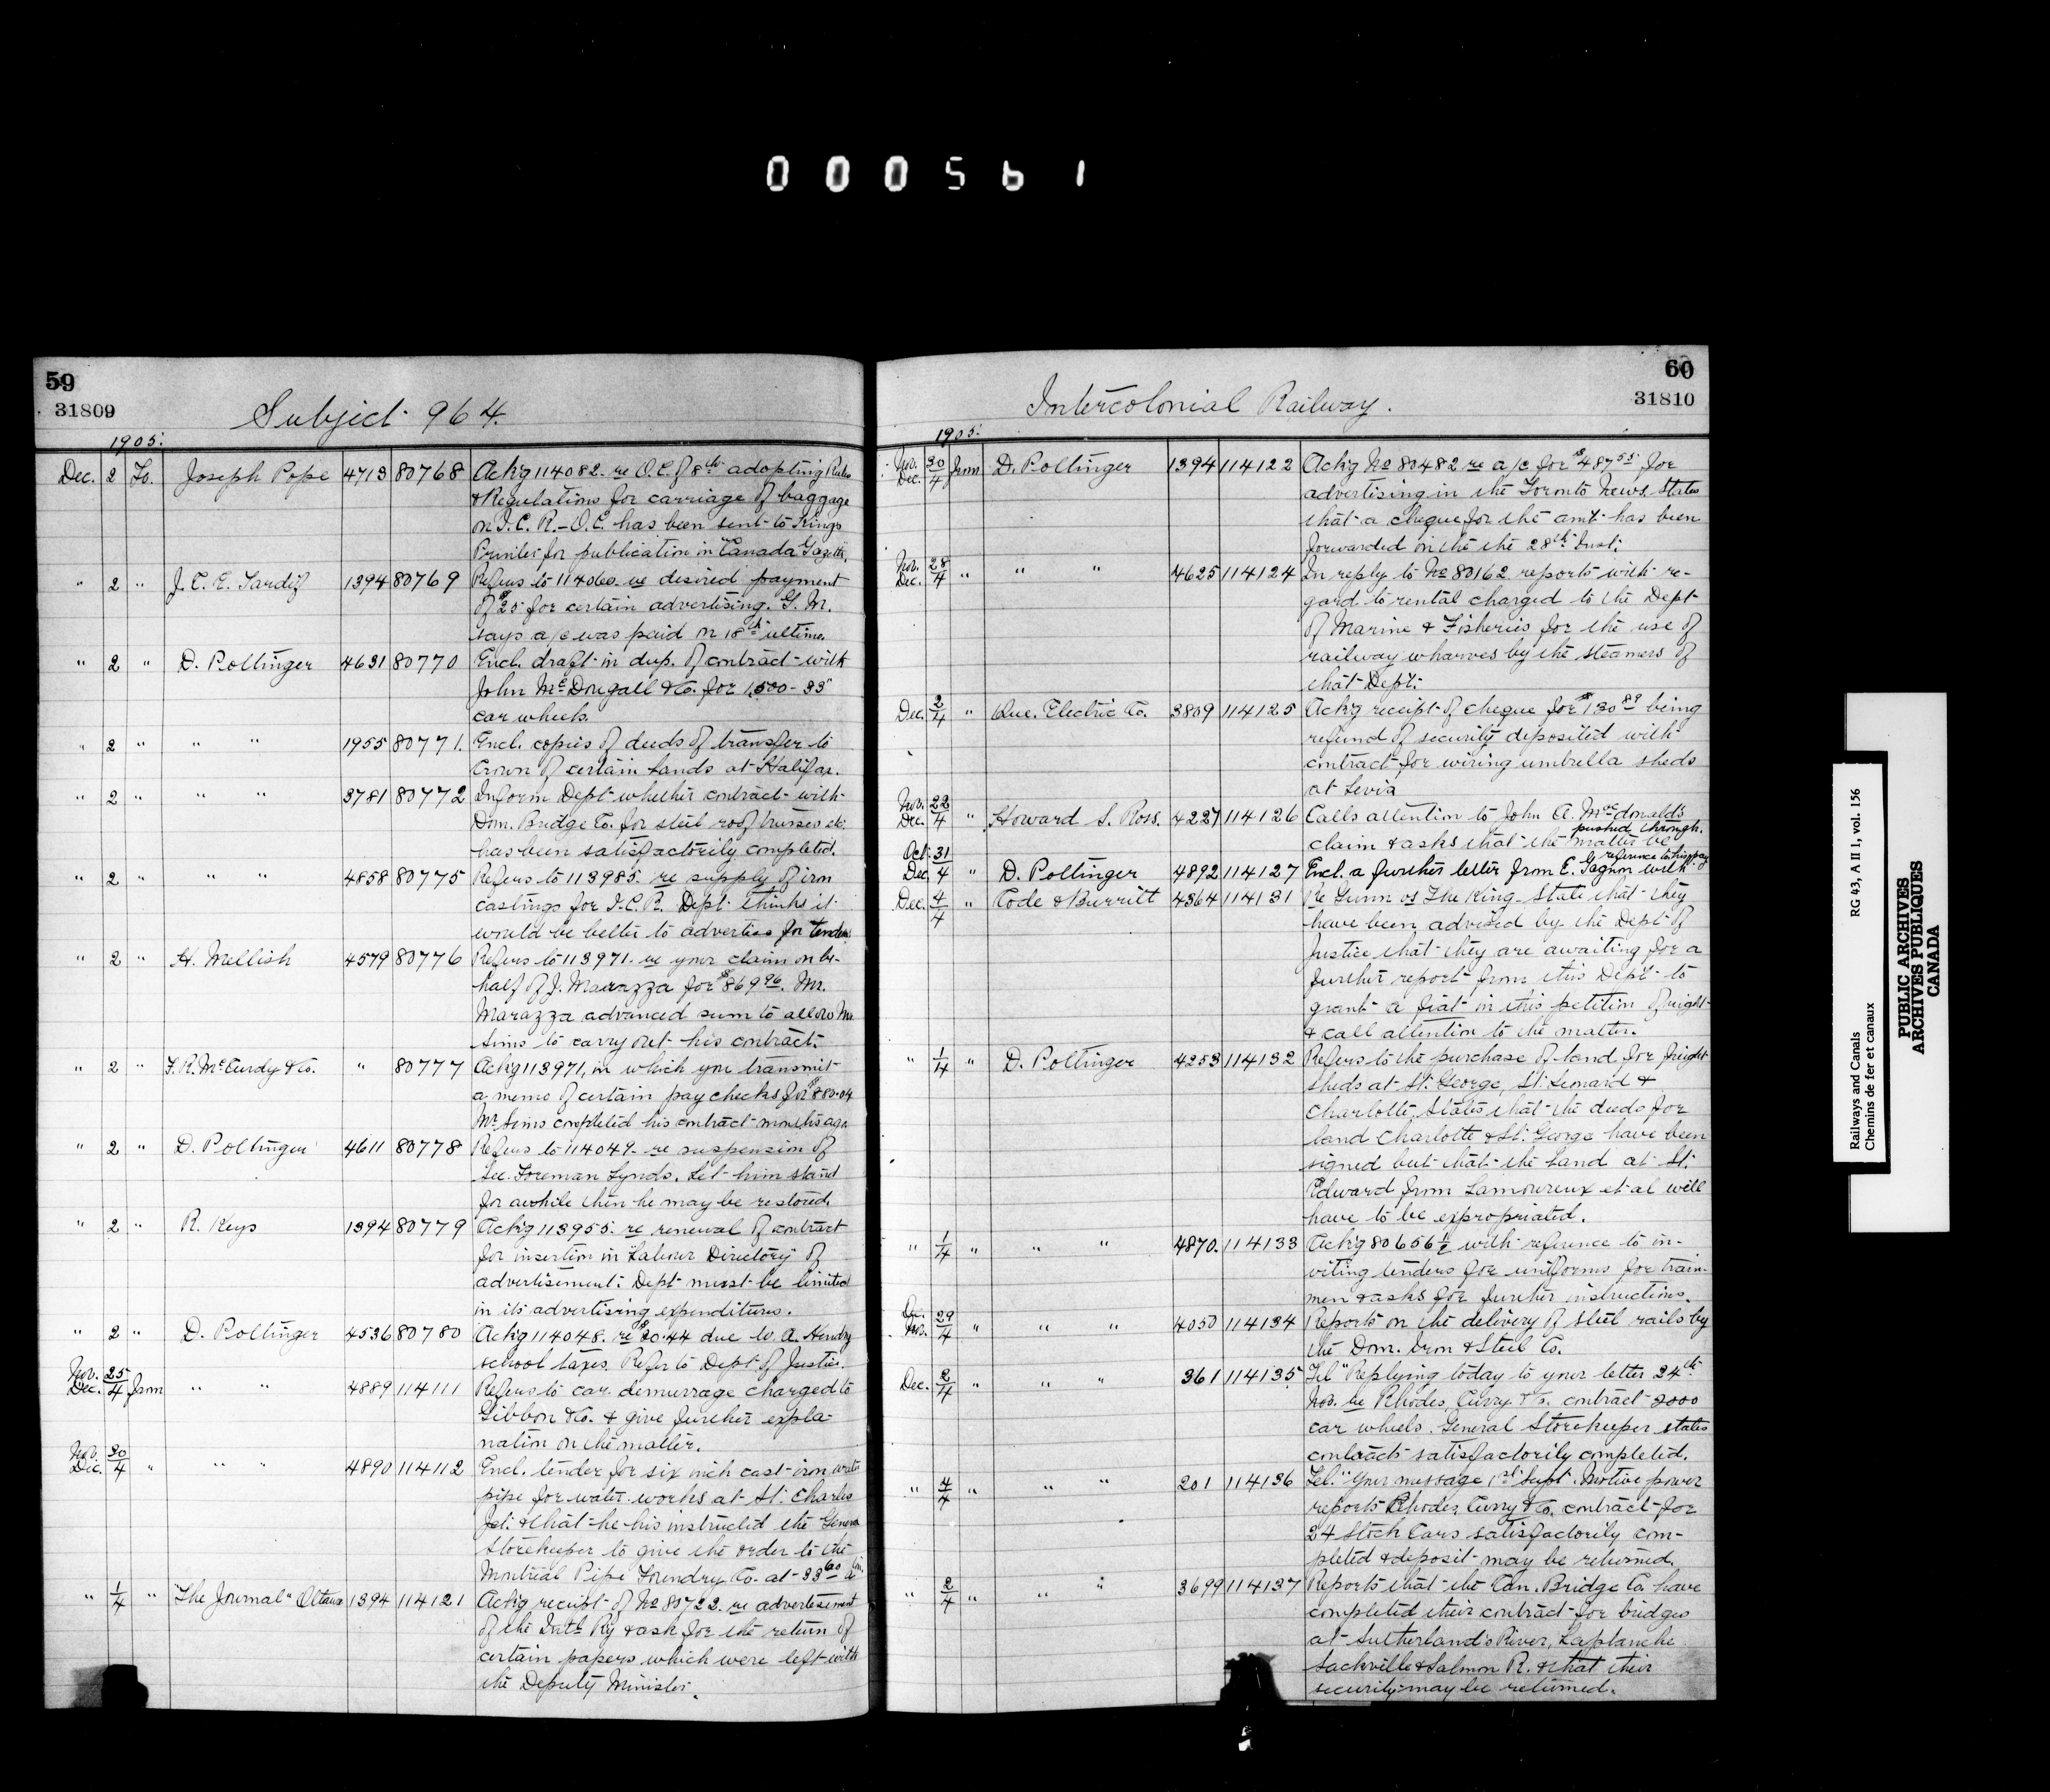 000561
59
31809
Subject 964.
1905.
Dec. 2 To. Joseph Pope 4713 80768 Ackg 114082 re O.C. of 8th adopting Rules
& Regulations for carriage of baggage
on I.C.R. - O.C. has been sent to Kings
Printer for publication in "Canada Gazette.
" 2 " J. C. E. Tardif 1394 80769 Refers to 114060 re desired payment
of $25 for certain advertising. G. M.
says a/c was paid on 18th ultimo.
" 2 " D. Pottinger 4631 80770 Encl. draft in dup. of contract with
John McDougall & Co. for 1,500 - 33"
car wheels.
" 2 " " " 1955 80771. Encl. copies of deeds of transfer to
Crown of certain lands at Halifax.
" 2 " " " 3781 80772 Inform Dept whether contract with
Dom. Bridge Co. for steel roof trusses etc.
has been satisfactorily completed.
" 2 " " " 4858 80775 Refers to 113985. re supply of iron
castings for I.C.R. Dept thinks it
would be better to advertise for tenders
" 2 " H. Mellish 4579 80776 Refers to 113971. re your claim on be-
half of J. Marazza for $869 96. Mr.
Marazza advanced sum to allow Mr.
Sims to carry out his contract.
" 2 " F. R. McCurdy & Co. " 80777 Ackg 113971, in which you transmit
a memo of certain pay checks for $880.04
Mr Sims completed his contract months ago.
" 2 " D. Pottinger 4611 80778 Refers to 114049. re suspension of
Sec. Foreman Lynds. Let him stand
for awhile then he may be restored.
" 2 " R. Keys 1394 80779 Ackg 113955. re renewal of contract
for insertion in "Labour Directory" of
advertisement. Dept must be limited
in its advertising expenditures.
" 2 " D. Pottinger 4536 80780 Ackg 114048. re $20.44 due W. A. Hendry
school taxes. Refer to Dept of Justice.
Nov. 25
Dec. 4 from " " 4889 114111 Refers to car demurrage charged to
Gibbon & Co. & give further expla-
nation on the matter.
Nov. 30
Dec. 4 " " " 4890 114112 Encl. tender for six inch cast iron water
pipe for water works at St. Charles
Jct. & that he his instructed the General
Storekeeper to give the order to the
Montreal Pipe Foundry Co. at 33 60 a ton.
" 1/4 " "The Journal" Ottawa 1394 114121 Ackg receipt of No 80722. re advertisement
of the Intl Ry & ask for the return of
certain papers which were left with
the Deputy Minister.
60
31810
Intercolonial Railway.
1905.
Nov. 30
Dec. 4 from D. Pottinger 1394 114122 Ackg No 80482 re a/c for $487 55 for
advertising in the Toronto News. States
that a cheque for the amt has been
forwarded on the the 28th Inst.
Nov. 28
Dec. 4 " " " 4625 114124 In reply to No 80162 reports with re-
gard to rental charged to the Dept
of Marine & Fisheries for the use of
railway wharves by the steamers of
that Dept.
Dec. 2/4 " Que. Electric Co. 3809 114125 Ackg receipt of cheque for $130 89 being
refund of security deposited with
contract for wiring umbrella sheds
at Levis
Nov. 22
Dec. 4 " Howard S. Ross. 4227 114126 Calls attention to John A. Macdonald's
claim & asks that the matter be pushed through.
Oct. 31
Dec. 4 " D. Pottinger 4892 114127 Encl. a further letter from E. Gagnon with reference to his pay
Dec. 4/4 " Code & Burritt 4364 114131 Re Gunn vs The King. State that they
have been advised by the Dept of
Justice that they are awaiting for a
further report from this Dept to
grant a fiat in this petition of right
& call attention to the matter.
" 1/4 " D. Pottinger 4253 114132 Refers to the purchase of land for freight
sheds at St. George, St. Leonard &
Charlotte. States that the deeds for
land Charlotte & St. George have been
signed but that the land at St.
Edward from Lamoureux et al will
have to be expropriated.
" 1/4 " " " 4870. 114133 Ackg 80656 1/2 with reference to in-
viting tenders for uniforms for train-
men & asks for further instructions.
Dec.
Nov. 29/4 " " " 4050 114134 Reports on the delivery of steel rails by
the Dom. Iron & Steel Co.
Dec. 2/4 " " " 361 114135 Tel "Replying today to your letter 24th
Nov. re Rhodes, Curry & Co. contract 2000
car wheels. General Storekeeper states
contracts satisfactorily completed.
" 4/4 " " " 201 114136 Tel. "Your message 1st Sept. Motive power
reports Rhodes Curry & Co. contract for
24 Stock Cars satisfactorily com-
pleted & deposit may be returned.
" 2/4 " " " 3699 114137 Reports that the Can. Bridge Co. have
completed their contract for bridges
at Sutherland's River, Laplanche
Sackville & Salmon R. & that their
security may be returned.
Railways and Canals RG 43, A II 1, vol. 156
Chemins de fer et canaux
PUBLIC ARCHIVES
ARCHIVES PUBLIQUES
CANADA